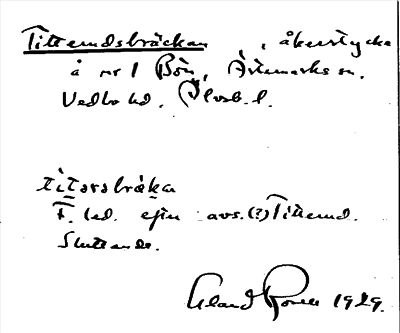 Tittemdsbräckan, åkerstycke
å nr 1 Bön, Ärtemarks sn.
Vedbo hd. Älvsb. l.
titersbräka
F. led. efter avs. (?) Tittemd.
Sluttande.
1929.